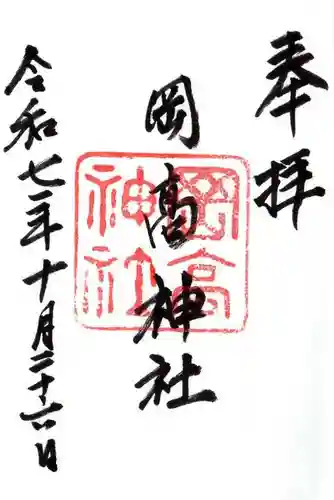 奉拝
岡高神社
岡高神社
令和七年十月二十六日